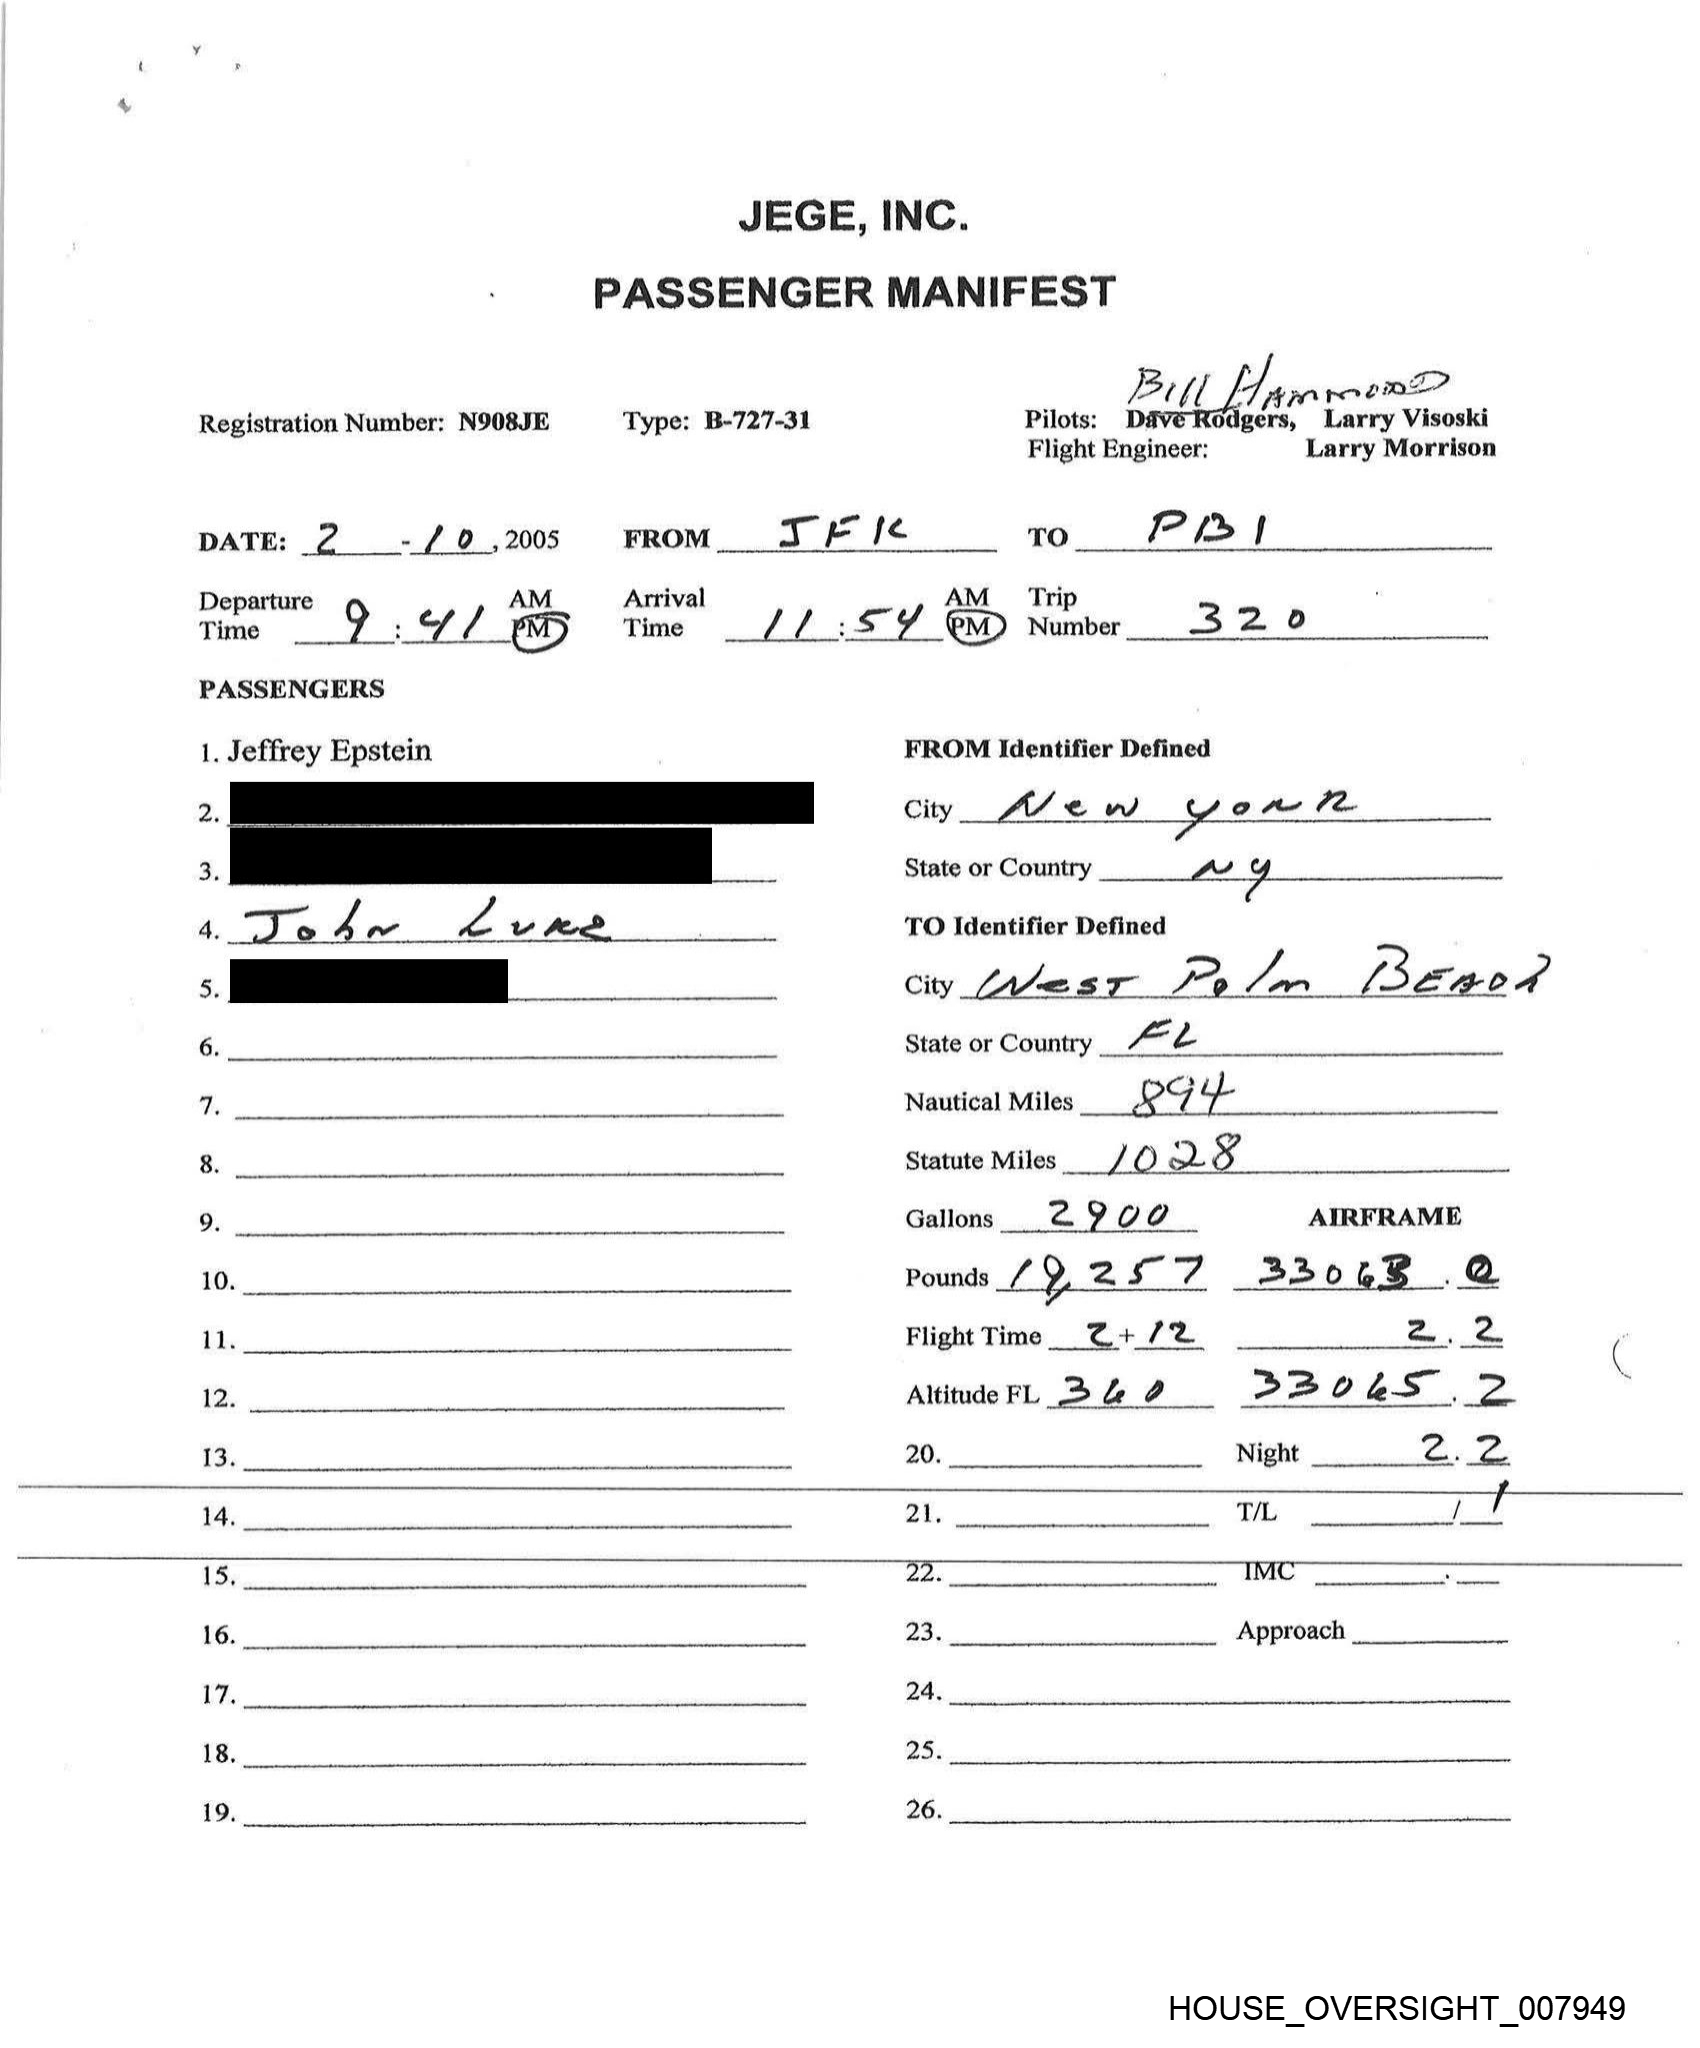 JEGE, INC.
PASSENGER MANIFEST
Bill Hammond
Registration Number: N908JE Type: B-727-31 Pilots: Dave Rodgers, Larry Visoski
Flight Engineer: Larry Morrison
DATE: 2 - 10, 2005 FROM JFK TO PBI
Departure Time 9:41 AM PM Arrival Time 11:54 AM PM Trip Number 320
PASSENGERS
1. Jeffrey Epstein FROM Identifier Defined
2. City New York
3. State or Country NY
4. John Luke TO Identifier Defined
5. City West Palm Beach
6. State or Country FL
7. Nautical Miles 894
8. Statute Miles 1028
9. Gallons 2900 AIRFRAME
10. Pounds 19,257 33063.0
11. Flight Time 2+12 2.2
12. Altitude FL 360 33065.2
13. 20. Night 2.2
14. 21. T/L / 1
15. 22. IMC .
16. 23. Approach
17. 24.
18. 25.
19. 26.
HOUSE_OVERSIGHT_007949